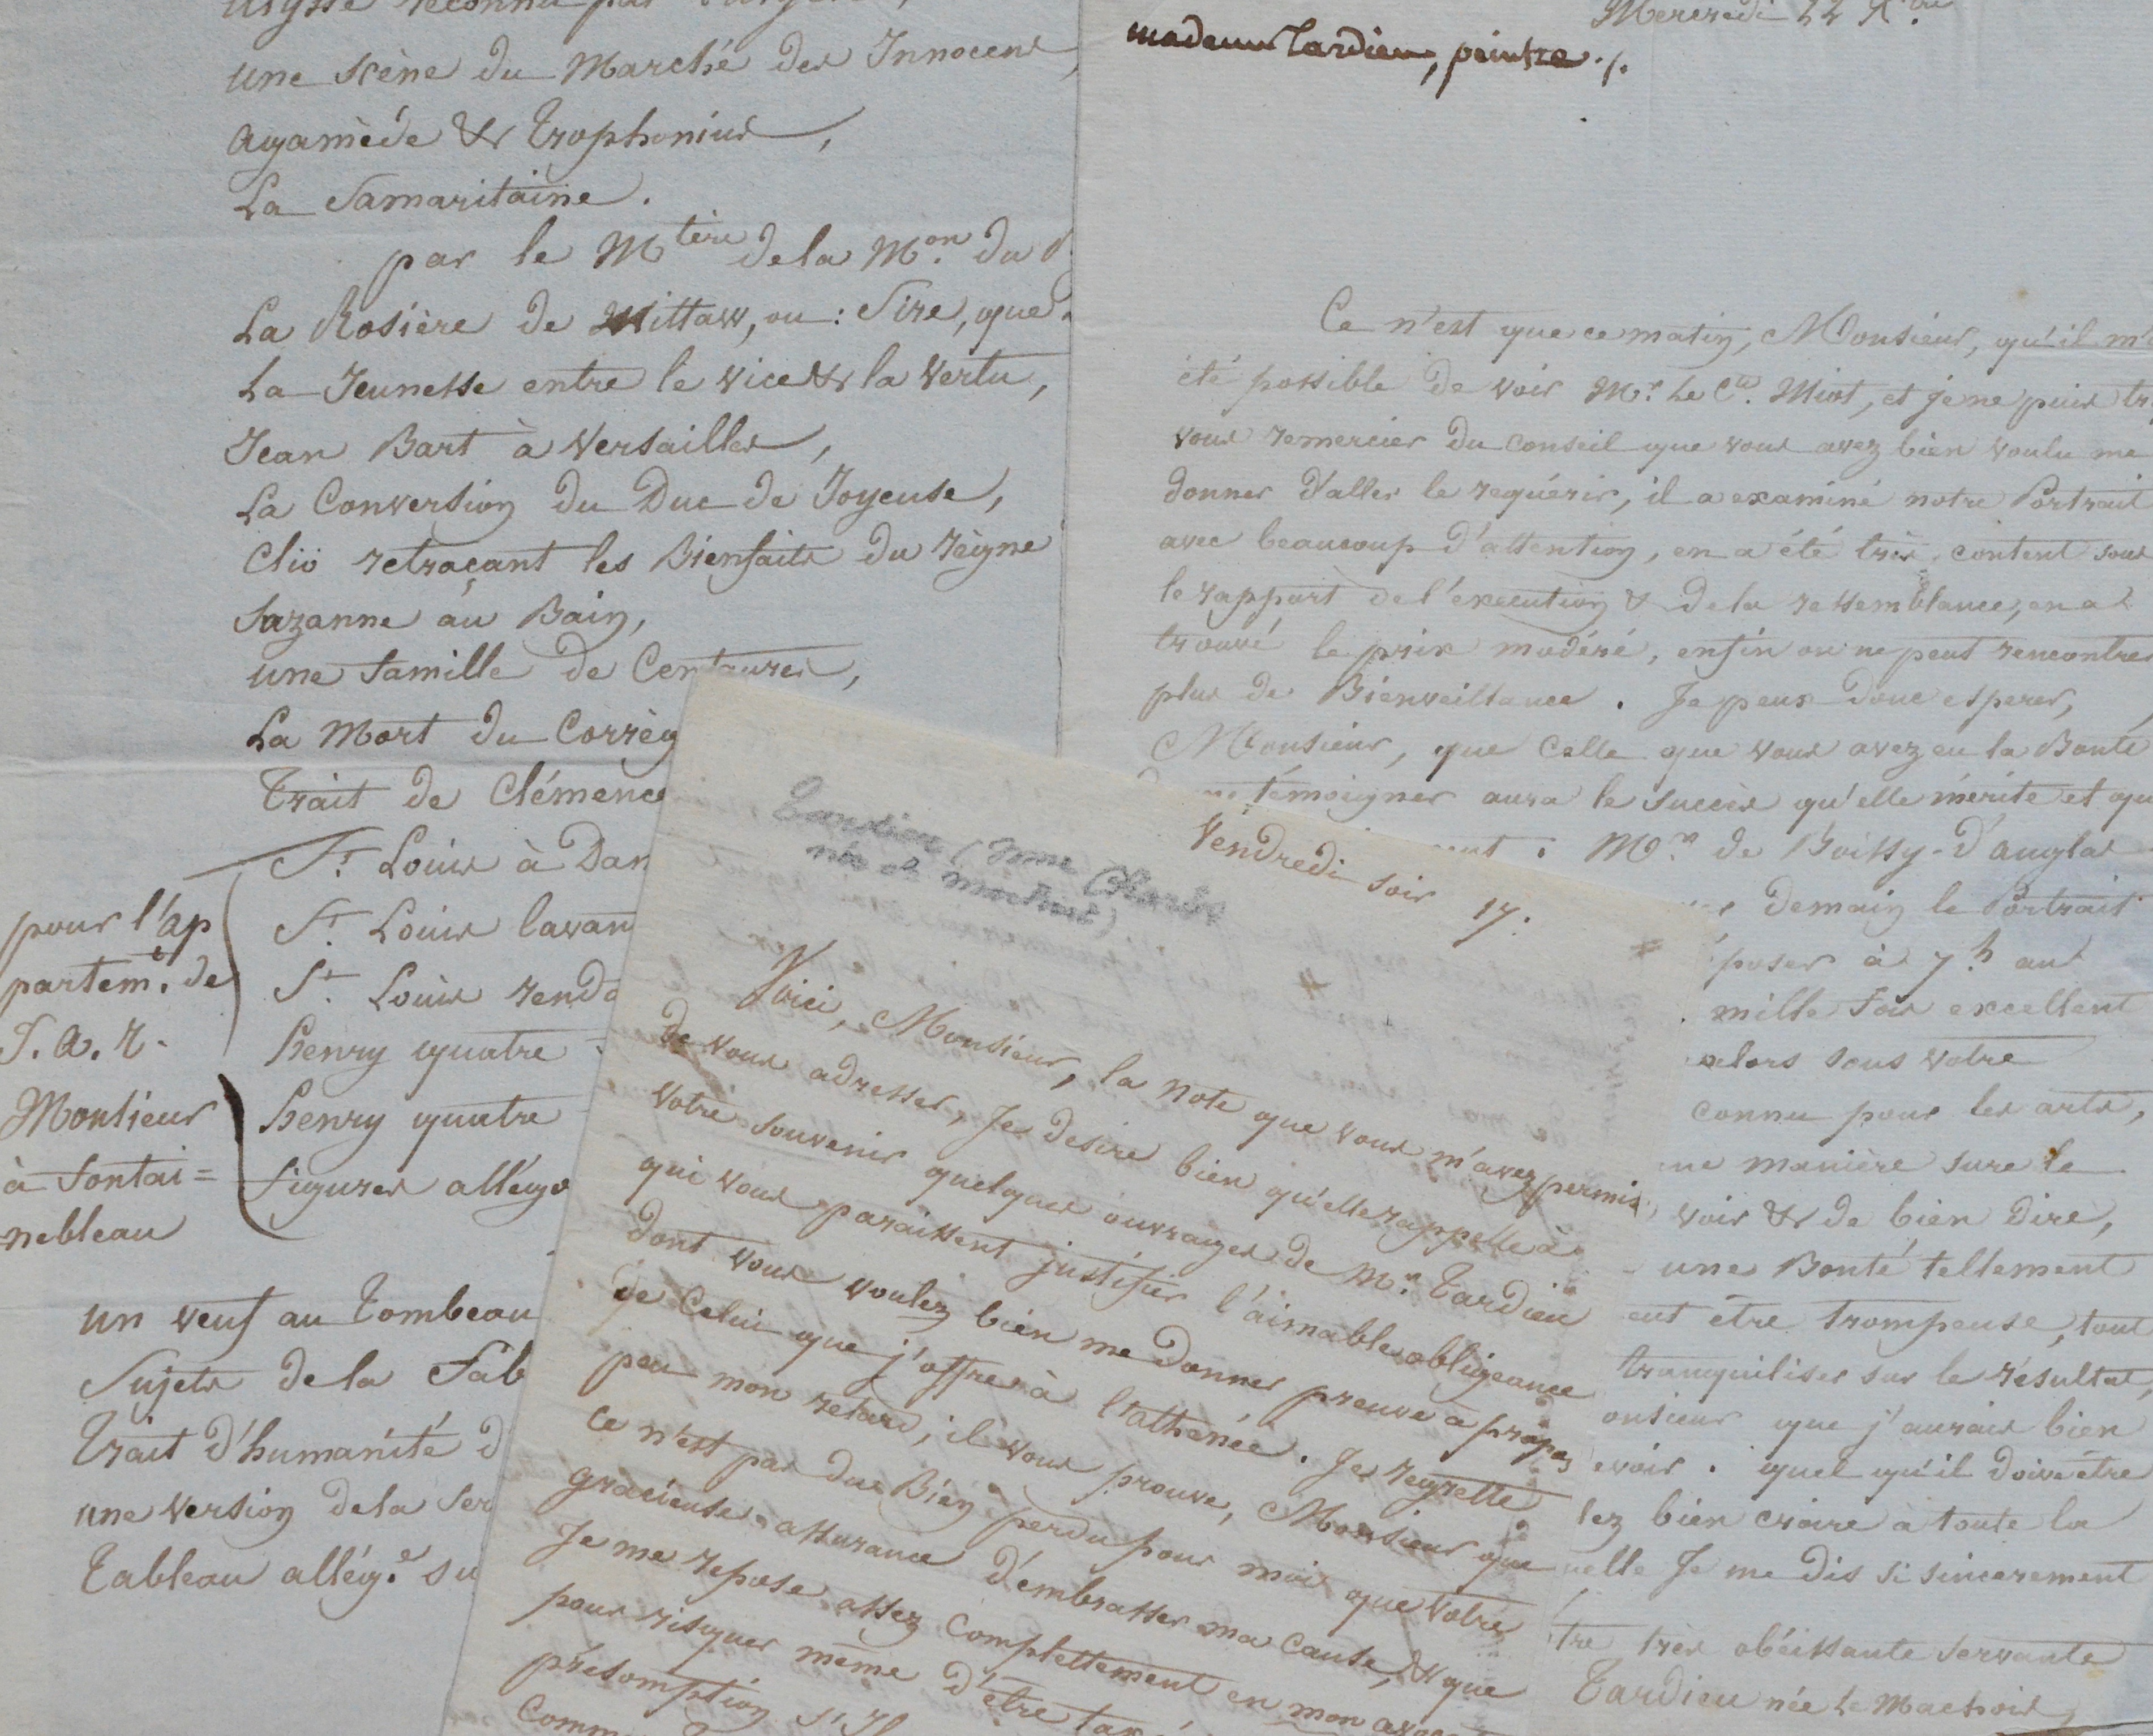 une scène du Marché des Innocens,
agamède & Trophonius,
La Samaritaine.
par le Mtère de la Mon. du
La Rosière de Mittaw, ou : Sire, que
La Jeunesse entre le vice & la Vertu,
Jean Bart à Versailles,
La Conversion du Duc de Joyeuse,
Clio retraçant les Bienfaits du règne
Suzanne au Bain,
une famille de Centaures,
La Mort du Corrèg
Trait de Clémence
St. Louis à Dam
St. Louis lavan
St. Louis renda
henry quatre
henry quatre
figures allégo
pour l'ap
partemt. de
S. A. R.
Monsieur
à fontai=
nebleau
un veuf au Tombeau
Sujets de la Fab
Trait d'humanité d
une version de la Ser
Tableau allég.e su
Mercredi 22 Xbre
madame Tardieu, peintre
Ce n'est que ce matin, Monsieur, qu'il m'a
été possible de voir Mr. Le Cte. Miot, et je ne puis tr
vous remercier du conseil que vous avez bien voulu me
donner d'aller le requérir, il a examiné notre Portrait
avec beaucoup d'attention, en a été très content sous
le rapport de l'execution & de la ressemblance, en a
trouvé le prix modéré, enfin on ne peut rencontrer
plus de Bienveillance. Je peux donc esperer,
Monsieur, que Celle que vous avez eu la Bonté
témoigner aura le succès qu'elle mérite et qu
Mr. de Boissy-d'anglas
demain le Portrait
poser à 7h. au
mille fois excellent
alors sous votre
connu pour les arts,
ne manière sure le
voir & de bien dire,
une Bonté tellement
eut être trompeuse, tout
tranquiliser sur le résultat,
onsieur que j'aurais bien
evoir. quel qu'il doive être
lez bien croire à toute la
uelle Je me dis si sincerement
tre très obéissante servante
Tardieu née Le Machois
Tardieu (Mme Charles
Vendredi soir 17.
Voici, Monsieur, la note que vous m'avez permis
de vous adresser, Je desire bien qu'elle rappelle à
votre souvenir quelques ouvrages de Mr. Tardieu
qui vous paraissent justifier l'aimable obligeance
dont vous voulez bien me donner preuve à propos
de Celui que j'offre à l'athénée. Je regrette
peu mon retard, il vous prouve, Monsieur que
ce n'est pas du Bien perdu pour moi que votre
gracieuse assurance d'embrasser ma cause, & que
Je me repose assez complettement en mon
pour risquer même d'être tax
présomption s'il
Comm